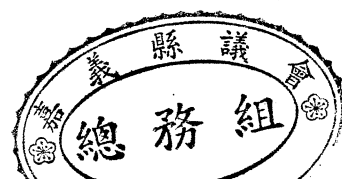 嘉義縣議會
總務組